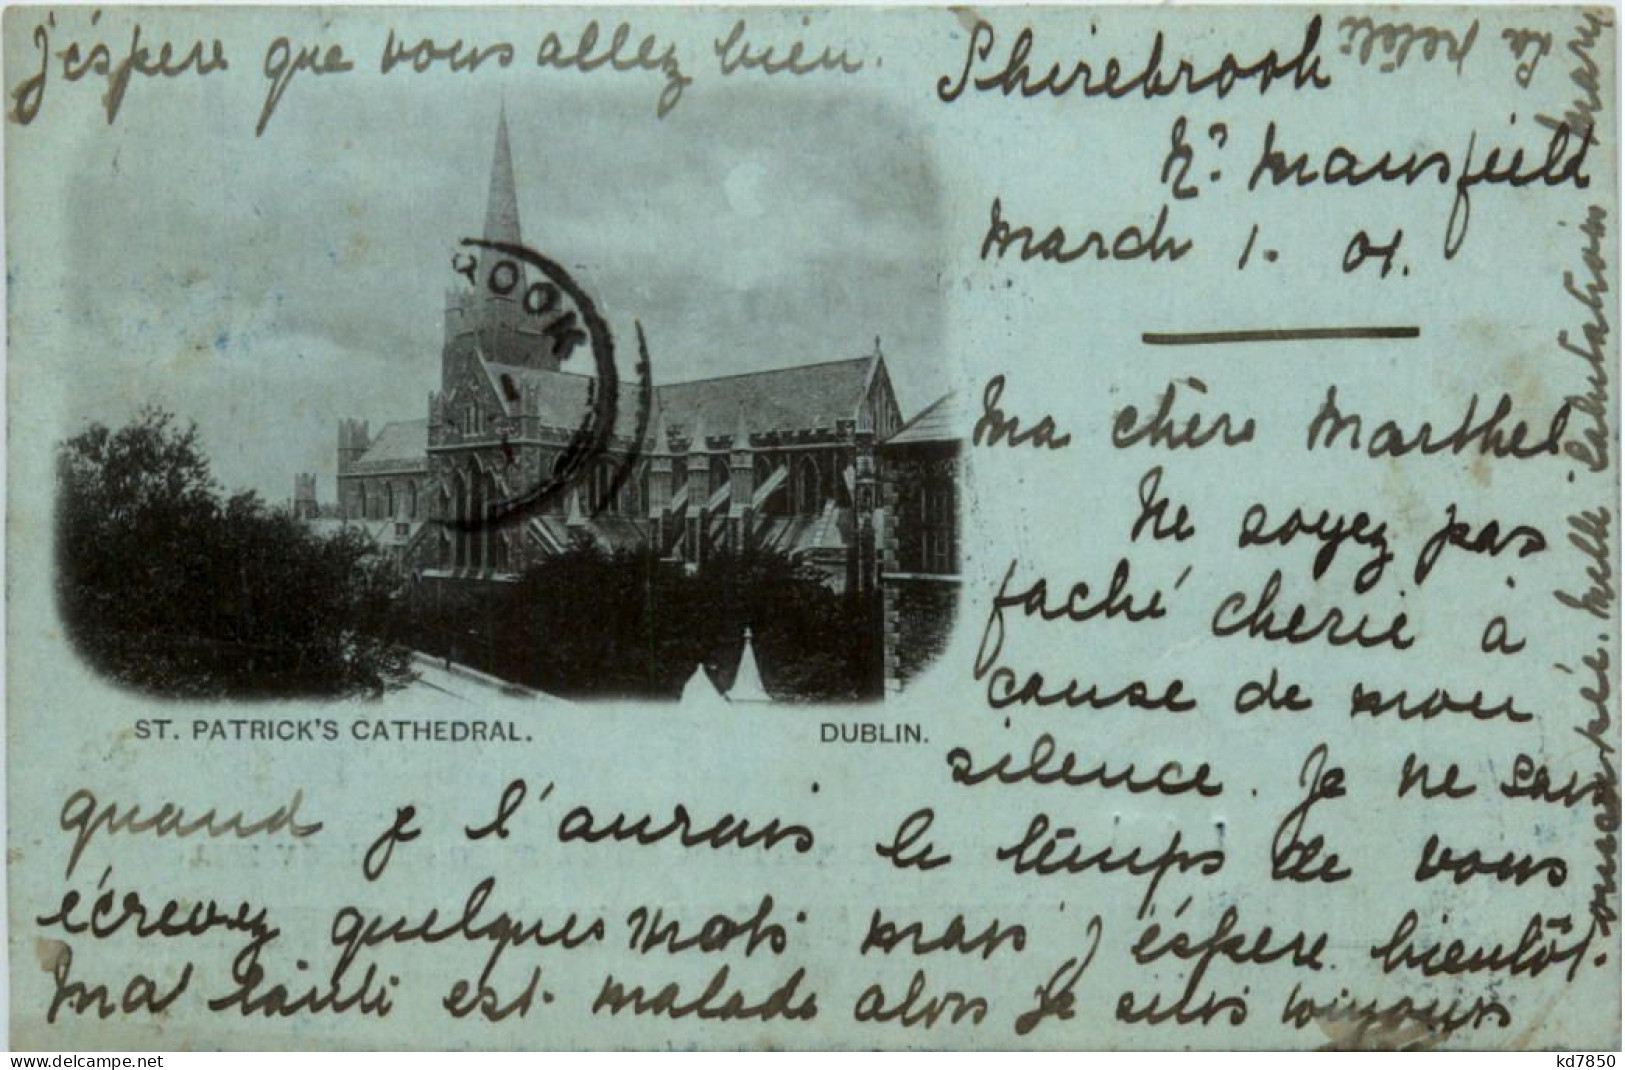 Shirebrook
Nr. Mansfield
March 1. 01.
Ma chère Marthe
Ne soyez pas
faché cherie à
cause de mon
silence. Je ne sais
quand je l'aurais le temps de vous
écrevez quelques mots mais j'éspere bientôt.
Ma tante est malade alors je suis toujours
occupée. Mille salutations Mary
La petite
J'éspere que vous allez bien.
ROOK
ST. PATRICK'S CATHEDRAL. DUBLIN.
www.delcampe.net
kd7850